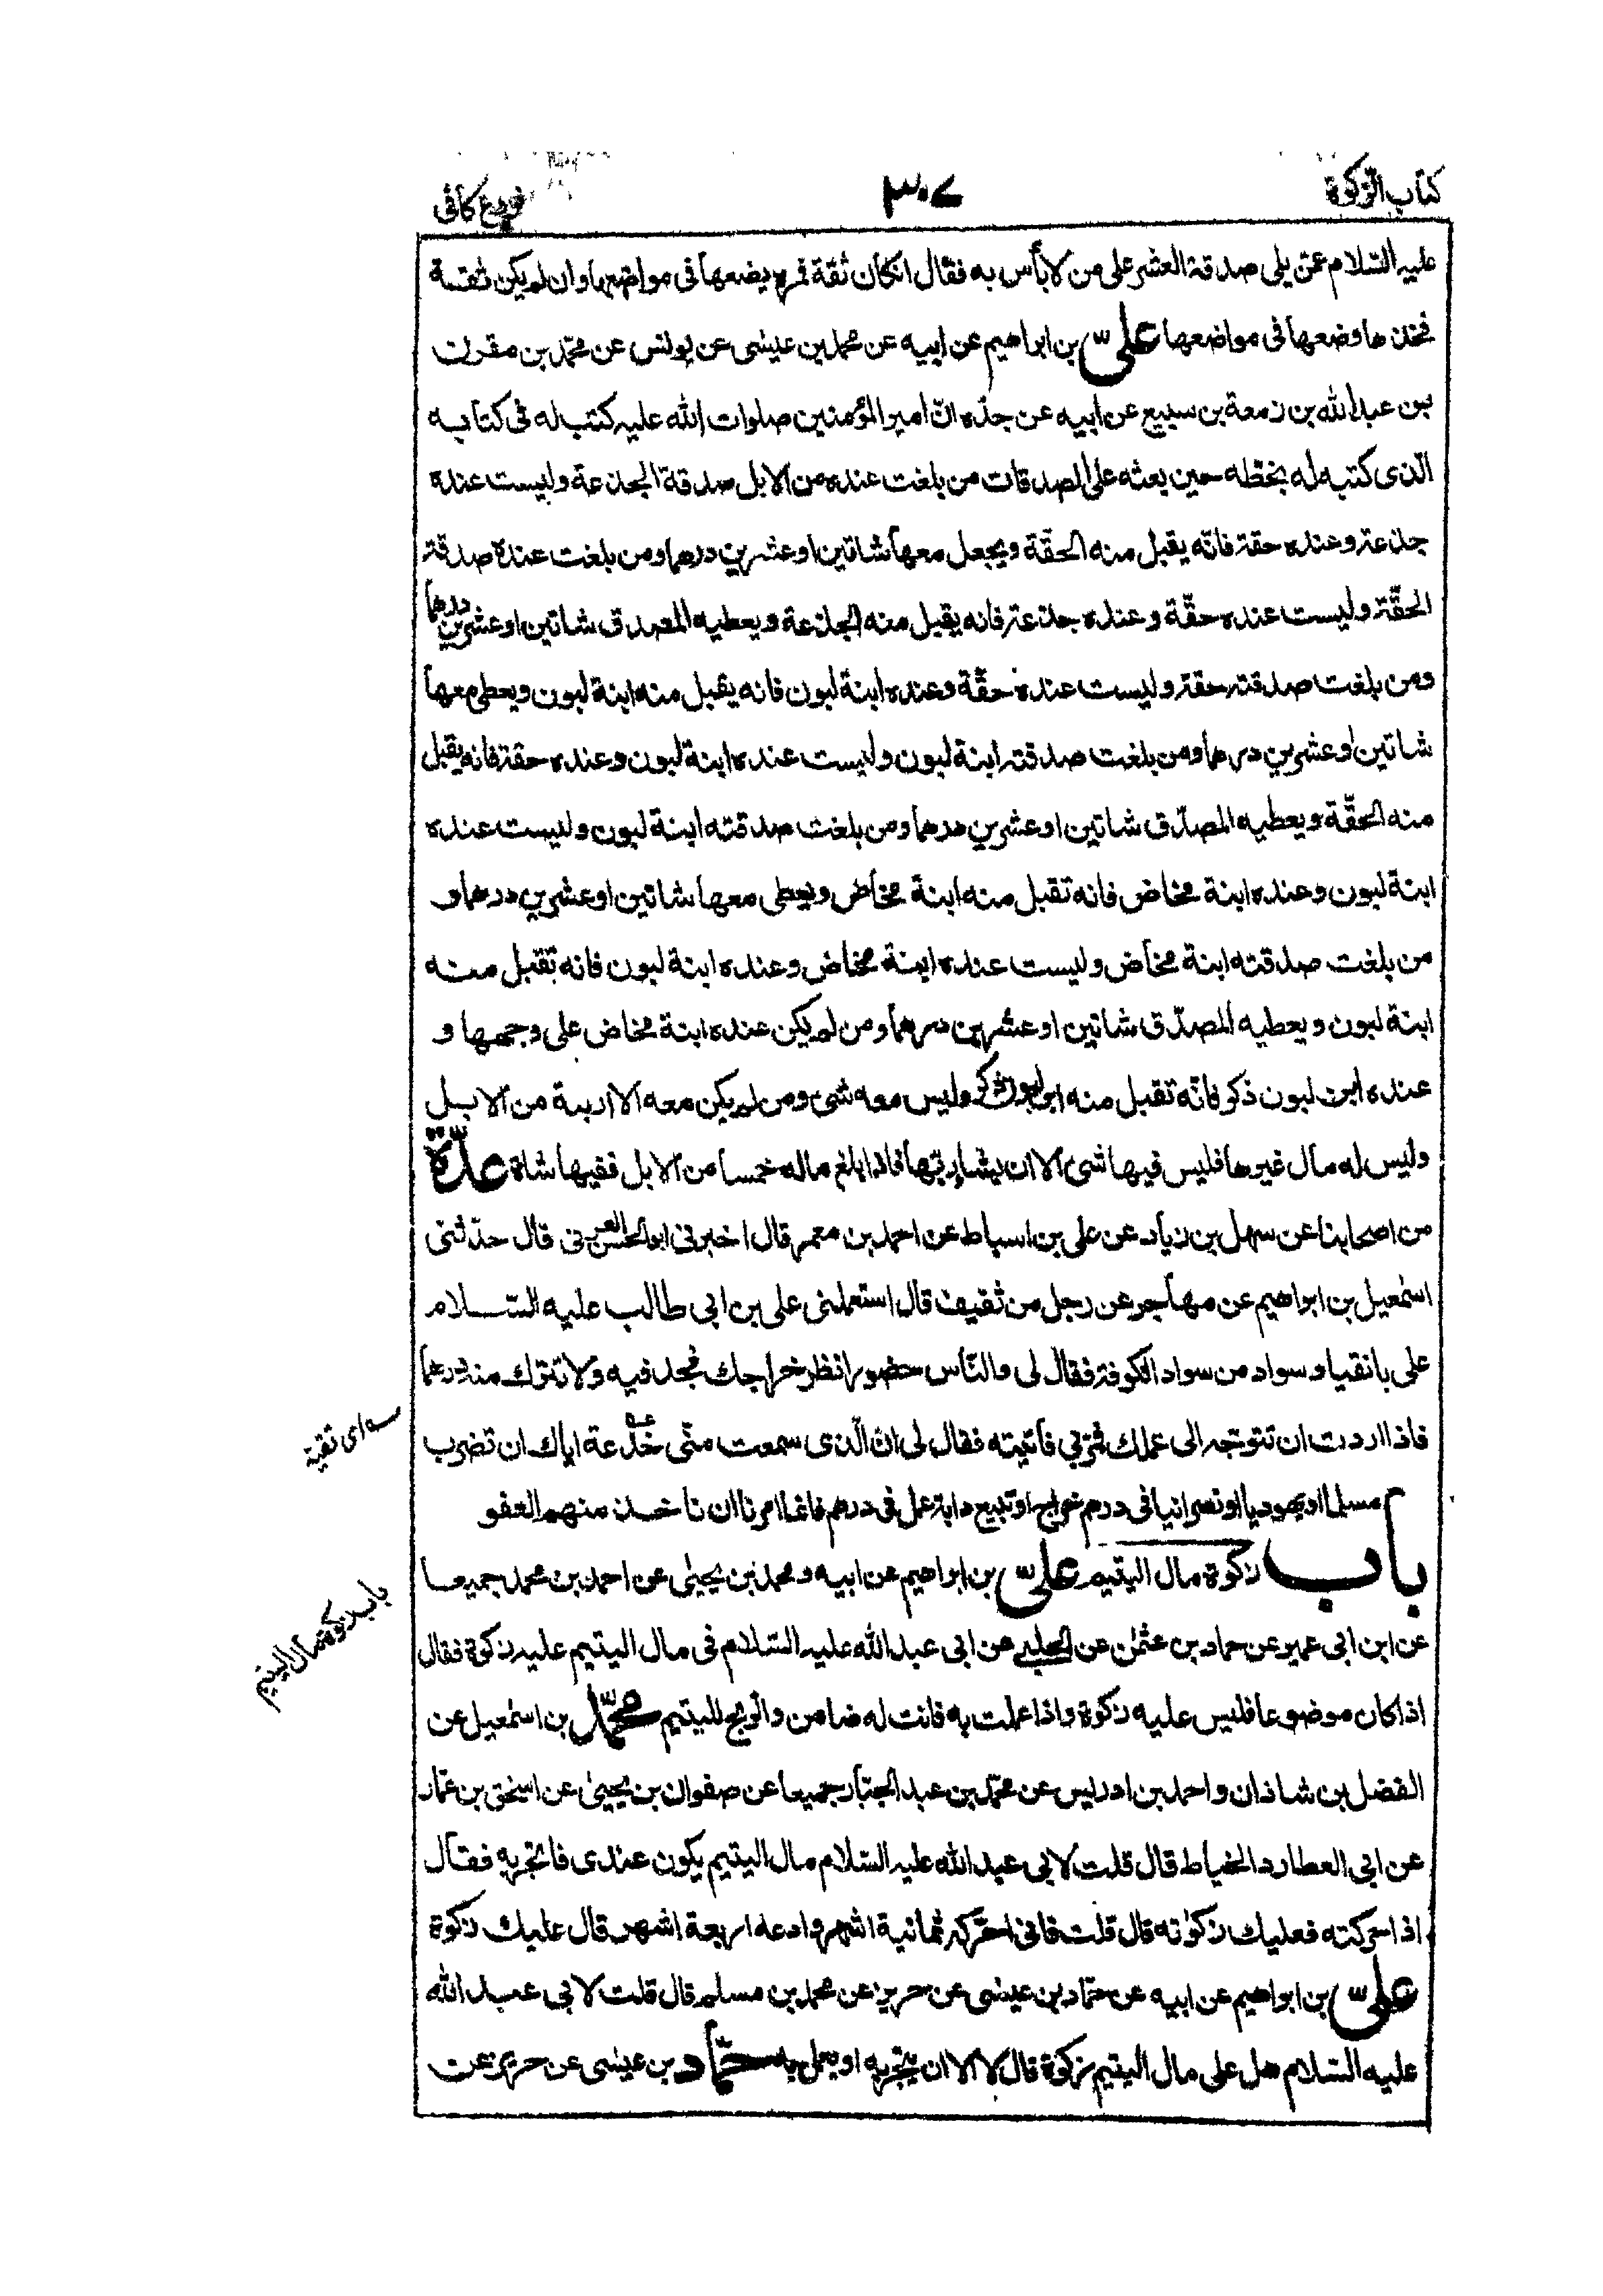 كتاب الزكوة
٣٠٧
فروع كافى
عليه السّلام عمّن يلى صدقة العشر على من لا بأس به فقال انكان ثقة فمره يضعها فى مواضعها وان لم يكن ثقة
فخذها وضعها فى مواضعها علىّ بن ابراهيم عن ابيه عن محمد بن عيسٰى عن يونس عن محمّد بن مقرن
بن عبدالله بن زمعة بن سبيع عن ابيه عن جدّه انّ امير المؤمنين صلوات الله عليه كتب له فى كتابه
الّذى كتبه له بخطّه حين بعثه على الصدقات من بلغت عنده من الابل صدقة الجذعة وليست عنده
جذعة وعنده حقة فانّه يقبل منه الحقّة ويجعل معها شاتين او عشرين درهما ومن بلغت عنده صدقة
الحقّة وليست عنده حقّة وعنده جذعة فانه يقبل منه الجذعة ويعطيه المصدق شاتين او عشرين درهما
ومن بلغت صدقته حقة وليست عنده حقّة وعنده ابنة لبون فانه يقبل منه ابنة لبون ويعطى معها
شاتين او عشرين درهما ومن بلغت صدقته ابنة لبون وليست عنده ابنة لبون وعنده حقة فانه يقبل
منه الحقّة ويعطيه المصدّق شاتين او عشرين درهما ومن بلغت صدقته ابنة لبون وليست عنده
ابنة لبون وعنده ابنة مخاض فانه تقبل منه ابنة مخاض ويعطى معها شاتين او عشرين درهما و
من بلغت صدقته ابنة مخاض وليست عنده ابنة مخاض وعنده ابنة لبون فانه تقبل منه
ابنة لبون ويعطيه المصدّق شاتين او عشرين درهما ومن لم يكن عنده ابنة مخاض على وجهها و
عنده ابن لبون ذكر فانّه تقبل منه ابن لبون ذكر وليس معه شئ ومن لم يكن معه الا اربعة من الابل
وليس له مال غيرها فليس فيها شئ الا ان يشاء ربها فاذا بلغ ماله خمسا من الابل ففيها شاة عدّة
من اصحابنا عن سهل بن زياد عن على بن اسباط عن احمد بن معمر قال اخبرنى ابوالحسن العرنى قال حدّثنى
اسمٰعيل بن ابراهيم عن مهاجر عن رجل من ثقيف قال استعملنى على بن ابى طالب عليه السّلام
على بانقيا وسواد من سواد الكوفة فقال لى والنّاس حضور انظر خراجك فجد فيه ولا تترك منه درهما
فاذا اردت ان تتوجّه الى عملك فمرّ بى فاتيته فقال لى انّ الّذى سمعت منّى خدعة اياك ان تضرب
سه اى تقية
مسلما او يهوديا او نصرانيا فى درهم خراج او تبيع دابة عمل فى درهم فانما امرنا ان ناخذ منهم العفو
باب زكوة مال اليتيم علىّ بن ابراهيم عن ابيه ومحمد بن يحيٰى عن احمد بن محمد جميعا
باب زكوة مال اليتيم
عن ابن ابى عمير عن حماد بن عثمٰن عن الحلبى عن ابى عبدالله عليه السّلام فى مال اليتيم عليه زكوة فقال
اذا كان موضوعا فليس عليه زكوة واذا عملت به فانت له ضامن والرّبح لليتيم محمّد بن اسمٰعيل عن
الفضل بن شاذان واحمد بن ادريس عن محمّد بن عبد الجبّار جميعا عن صفوان بن يحيىٰ عن اسحٰق بن عمّار
عن ابى العطارد الخياط قال قلت لابى عبدالله عليه السّلام مال اليتيم يكون عندى فاتّجر به فقال
اذا حركته فعليك زكوته قال قلت فانى احرّكه ثمانية اشهر وادعه اربعة اشهر قال عليك زكوة
علىّ بن ابراهيم عن ابيه عن حمّاد بن عيسٰى عن حريز عن محمد بن مسلم قال قلت لابى عبدالله
عليه السّلام هل على مال اليتيم زكوة قال لا الا ان يتّجر به او يعمل به حمّاد بن عيسٰى عن حريز عن